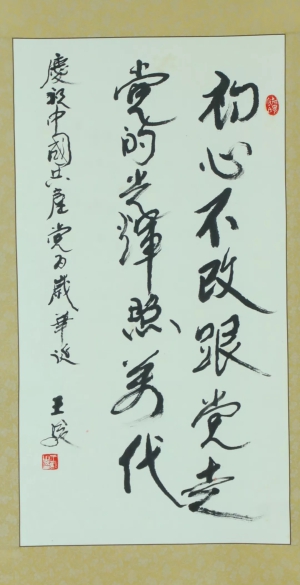 初心不改跟党走
党的光辉照万代
慶祝中國共産党百歲華诞
王